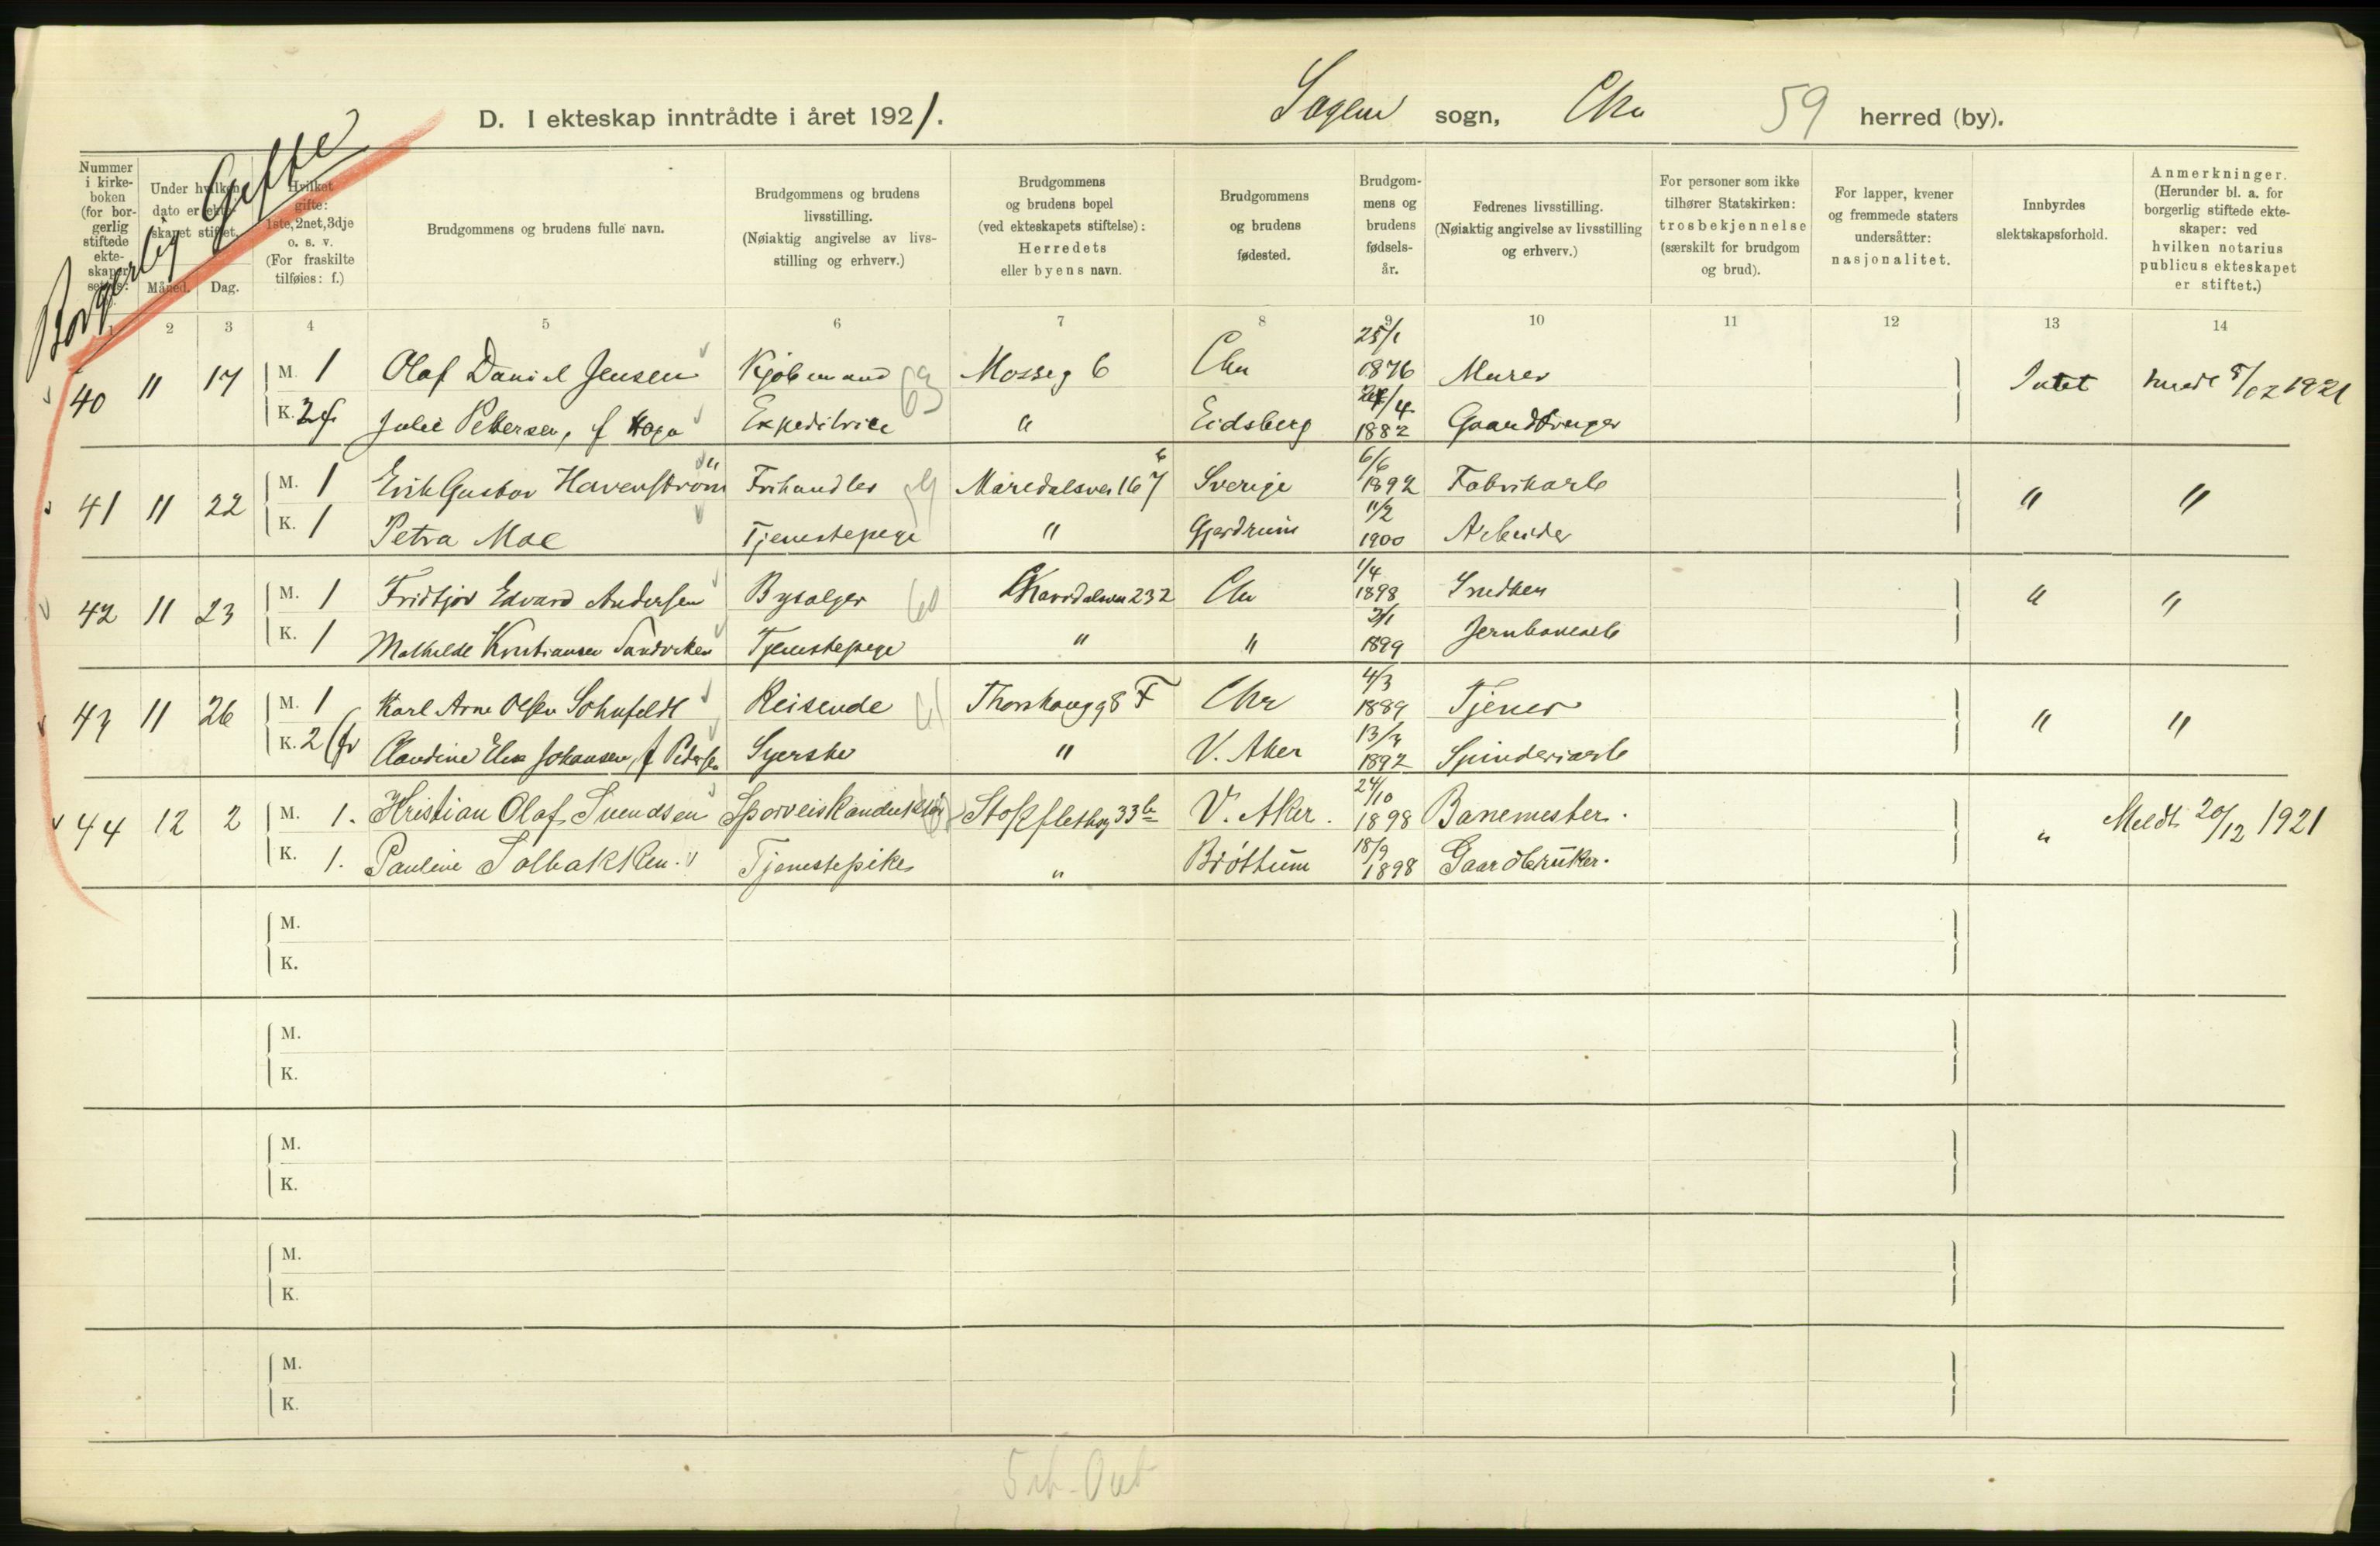 D. I ekteskap inntrådte i året 1921.
Sagene sogn, Chr 59 herred (by).
Borgerlig Gifte
Nummer i kirke-boken (for bor-gerlig stiftede ekte-skaper settes:
Under hvilken dato er ekte-skapet stiftet.
Måned. Dag.
Hvilket gifte: 1ste, 2net, 3dje o. s. v. (For fraskilte tilføies: f.)
Brudgommens og brudens fulle navn.
Brudgommens og brudens livsstilling. (Nøiaktig angivelse av livs-stilling og erhverv.)
Brudgommens og brudens bopel (ved ekteskapets stiftelse): Herredets eller byens navn.
Brudgommens og brudens fødested.
Brudgom-mens og brudens fødsels-år.
Fedrenes livsstilling. (Nøiaktig angivelse av livsstilling og erhverv.)
For personer som ikke tilhører Statskirken: trosbekjennelse (særskilt for brudgom og brud).
For lapper, kvener og fremmede staters undersåtter: nasjonalitet.
Innbyrdes slektskapsforhold.
Anmerkninger. (Herunder bl. a. for borgerlig stiftede ekte-skaper: ved hvilken notarius publicus ekteskapet er stiftet.)
1 2 3 4 5 6 7 8 9 10 11 12 13 14
40 11 17 M. 1 Olaf Daniel Jensen Kjøbmand 63 Mosseg 6 Chr 25/1 1876 Murer Intet 5/12 1921
K. 2 f. Julie Pettersen, f Haga Expeditrice " Eidsberg 24/4 1882 Gaardbruger
41 11 22 M. 1 Erik Gustav Havenström Frihandler 59 Maridalsvei 167 6 Sverige 6/6 1892 Fabrikarb " "
K. 1 Petra Moe Tjenestepige " Gjerdrum 11/2 1900 Arbeider
42 11 23 M. 1 Fridtjov Edvard Andersen Bysælger 60 Maridalsvei 232 Chr 1/4 1898 Snedker " "
K. 1 Mathilde Kristiansen Sandviken Tjenestepige " " 2/1 1899 Jernbanearb
43 11 26 M. 1 Karl Arne Olsen Sohnfeldt Reisende 61 Thorshaugg 8 F Chr 4/3 1889 Tjener " "
K. 2 (f) Claudine Elise Johansen, f Pedersen Syerske " V. Aker 13/3 1892 Spinderiarb
44 12 2 M. 1. Kristian Olaf Svendsen Sporveiskonduktør Stokflethsg 33 b V. Aker. 24/10 1898 Banemester. " Meldt 20/12 1921
K. 1. Pauline Solbakken. Tjenestepike " Brøttum 18/9 1898 Gaardbruker.
M.
K.
M.
K.
M.
K.
M.
K.
M.
K.